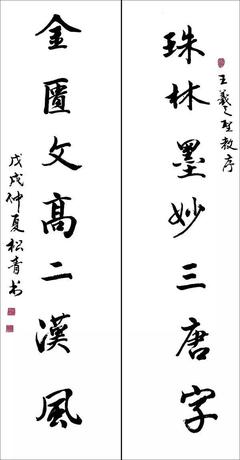 王羲之圣教序
珠林墨妙三唐字
金匱文髙二漢風
戊戌仲夏松青书